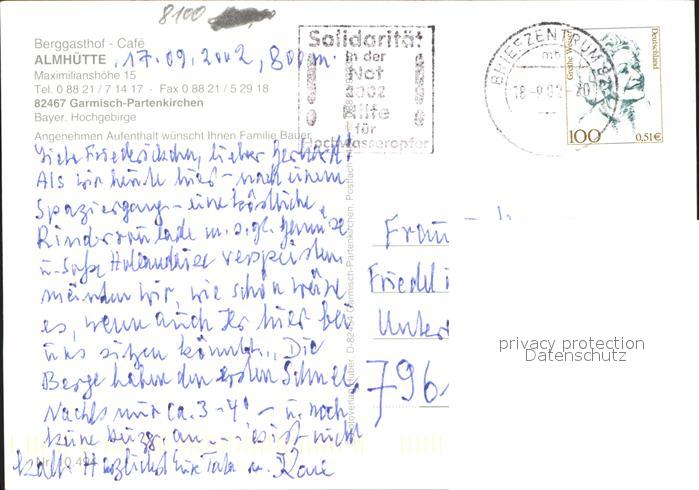 8100
Berggasthof - Café
ALMHÜTTE
Maximilianshöhe 15
Tel. 0 88 21 / 7 14 17 · Fax 0 88 21 / 5 29 18
82467 Garmisch-Partenkirchen
Bayer. Hochgebirge
Angenehmen Aufenthalt wünscht Ihnen Familie Bauer
17.09.2002, 800 m.
Solidarität
in der
Not
2002
Hilfe
für
Hochwasseropfer
BRIEFZENTRUM 82
mb
18-9.02-20
Grethe Weiser
Deutschland
100
0,51€
Liebe Friederickchen, lieber Gerhard!
Als wir heute hier – nach einem
Spaziergang – eine köstliche
Rinderroulade m. Gemüse
u. Soße Hollandaise verspeisten
meinten wir, wie schön wäre
es, wenn auch Ihr hier bei
uns sitzen könntet. Die
Berge haben den ersten Schnee,
Nachts nur ca. 3-4° – u. noch
keine Heizg. an... ist nicht
kalt. Herzlichst Eure u.
Frau
Friedel
Unter
796
D-82467 Garmisch-Partenkirchen.
Nr. 10 494
privacy protection
Datenschutz